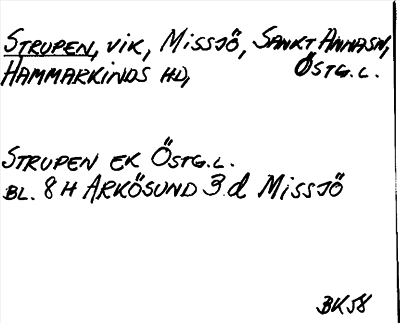 STRUPEN, VIK, MISSJÖ, SANKT ANNASN,
HAMMARKINDS HD, ÖSTG. L.
STRUPEN EK ÖSTG. L.
BL. 8 H ARKÖSUND 3 d MISSJÖ
BK58